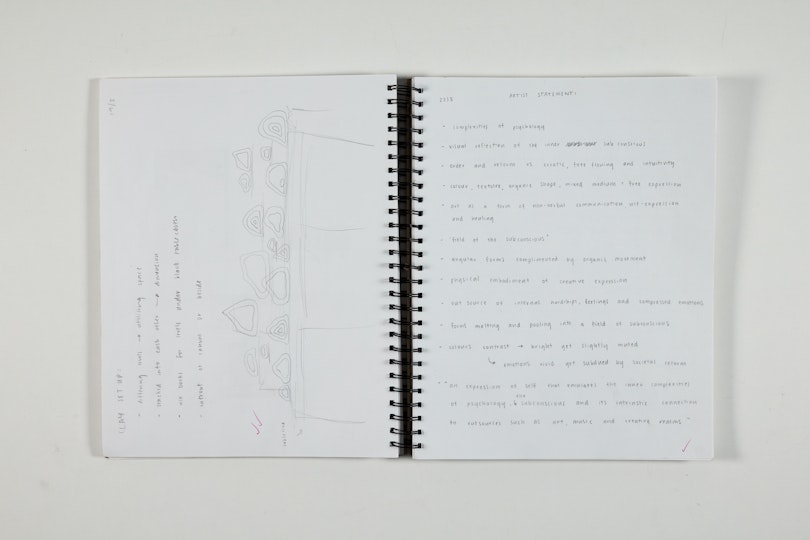 CLAY SET UP:
- differing levels → utilising space
- stacked into each other → dimension
- use books for levels under black table cloth
- instead of canvas on
ARTIST STATEMENT:
- complexities of psychology
- visual reflection of the inner sub conscious
- order and and intuitivity
- colour, texture, organic shape, mixed mediums + free expression
- art as a form of non-verbal communication art-expression
and healing
- "field of the subconscious"
- angular forms complimented by organic movement
- physical embodiment of creative expression
- out source of internal hardships, feelings and compressed emotions
- forms melting and pooling into a field of subconscious
- colours contrast → bright yet slightly muted
↳ emotions vivid yet subdued by societal
- "an expression of self that emulates the inner complexities
of psychology & the subconscious and its intrinsic connection
to outsources such as art, music and creating realms"